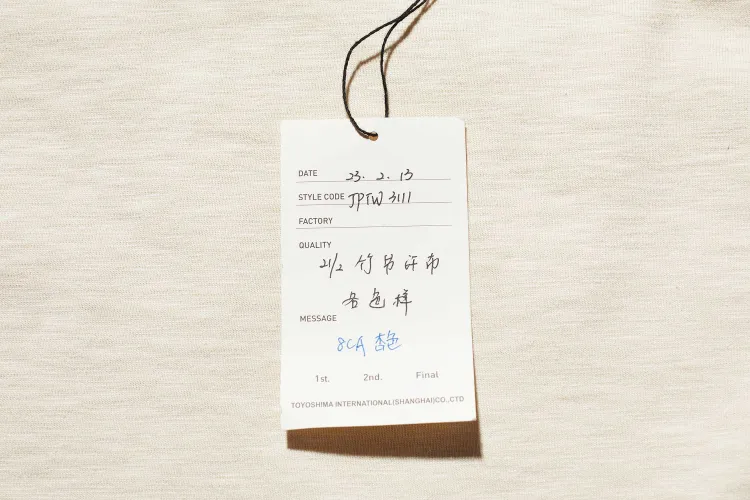 DATE 23. 2. 13
STYLE CODE JPTW 3111
FACTORY
QUALITY
21/2 竹节汗布
各色样
MESSAGE
8CA 杏色
1st. 2nd. Final
TOYOSHIMA INTERNATIONAL(SHANGHAI)CO.,CTD